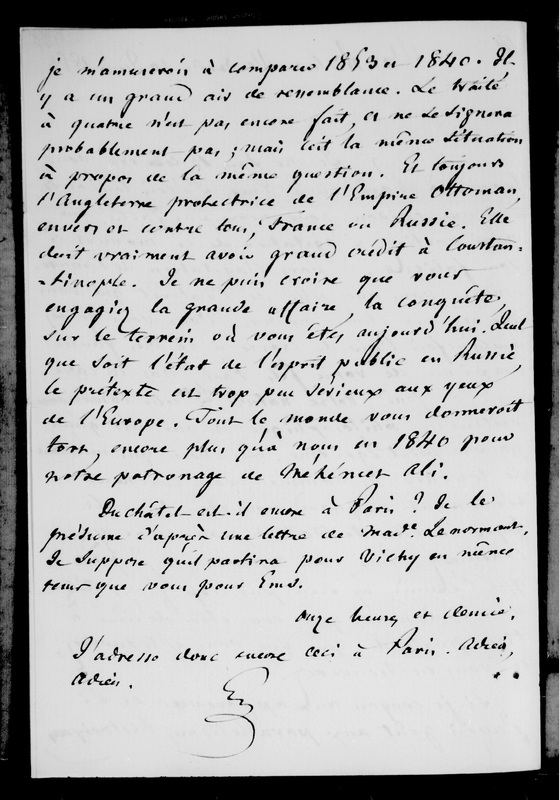 je m'amuserois à comparer 1853 et 1840. Il
y a un grand air de ressemblance. Le traité
à quatre n'est pas encore fait, et ne se signera
probablement pas ; mais c'est la même situation
à propos de la même question. Et toujours
l'Angleterre protectrice de l'Empire Ottoman,
envers et contre tous, France ou Russie. Elle
doit vraiment avoir grand crédit à Constan=
=tinople. Je ne puis croire que vous
engagiez la grande affaire, la conquête,
sur le terrein où vous êtes aujourd'hui. Quel
que soit l'état de l'esprit public en Russie,
le prétexte est trop peu sérieux aux yeux
de l'Europe. Tout le monde vous donneroit
tort, encore plus qu'à nous en 1840 pour
notre patronage de Méhémet Ali.
Duchâtel est-il encore à Paris ? Je le
présume d'après une lettre de Mad.e Lenormant.
Je suppose qu'il partira pour Vichy en même
tems que vous pour Ems.
Onze heures et demie.
J'adresse donc encore ceci à Paris. Adieu,
Adieu.